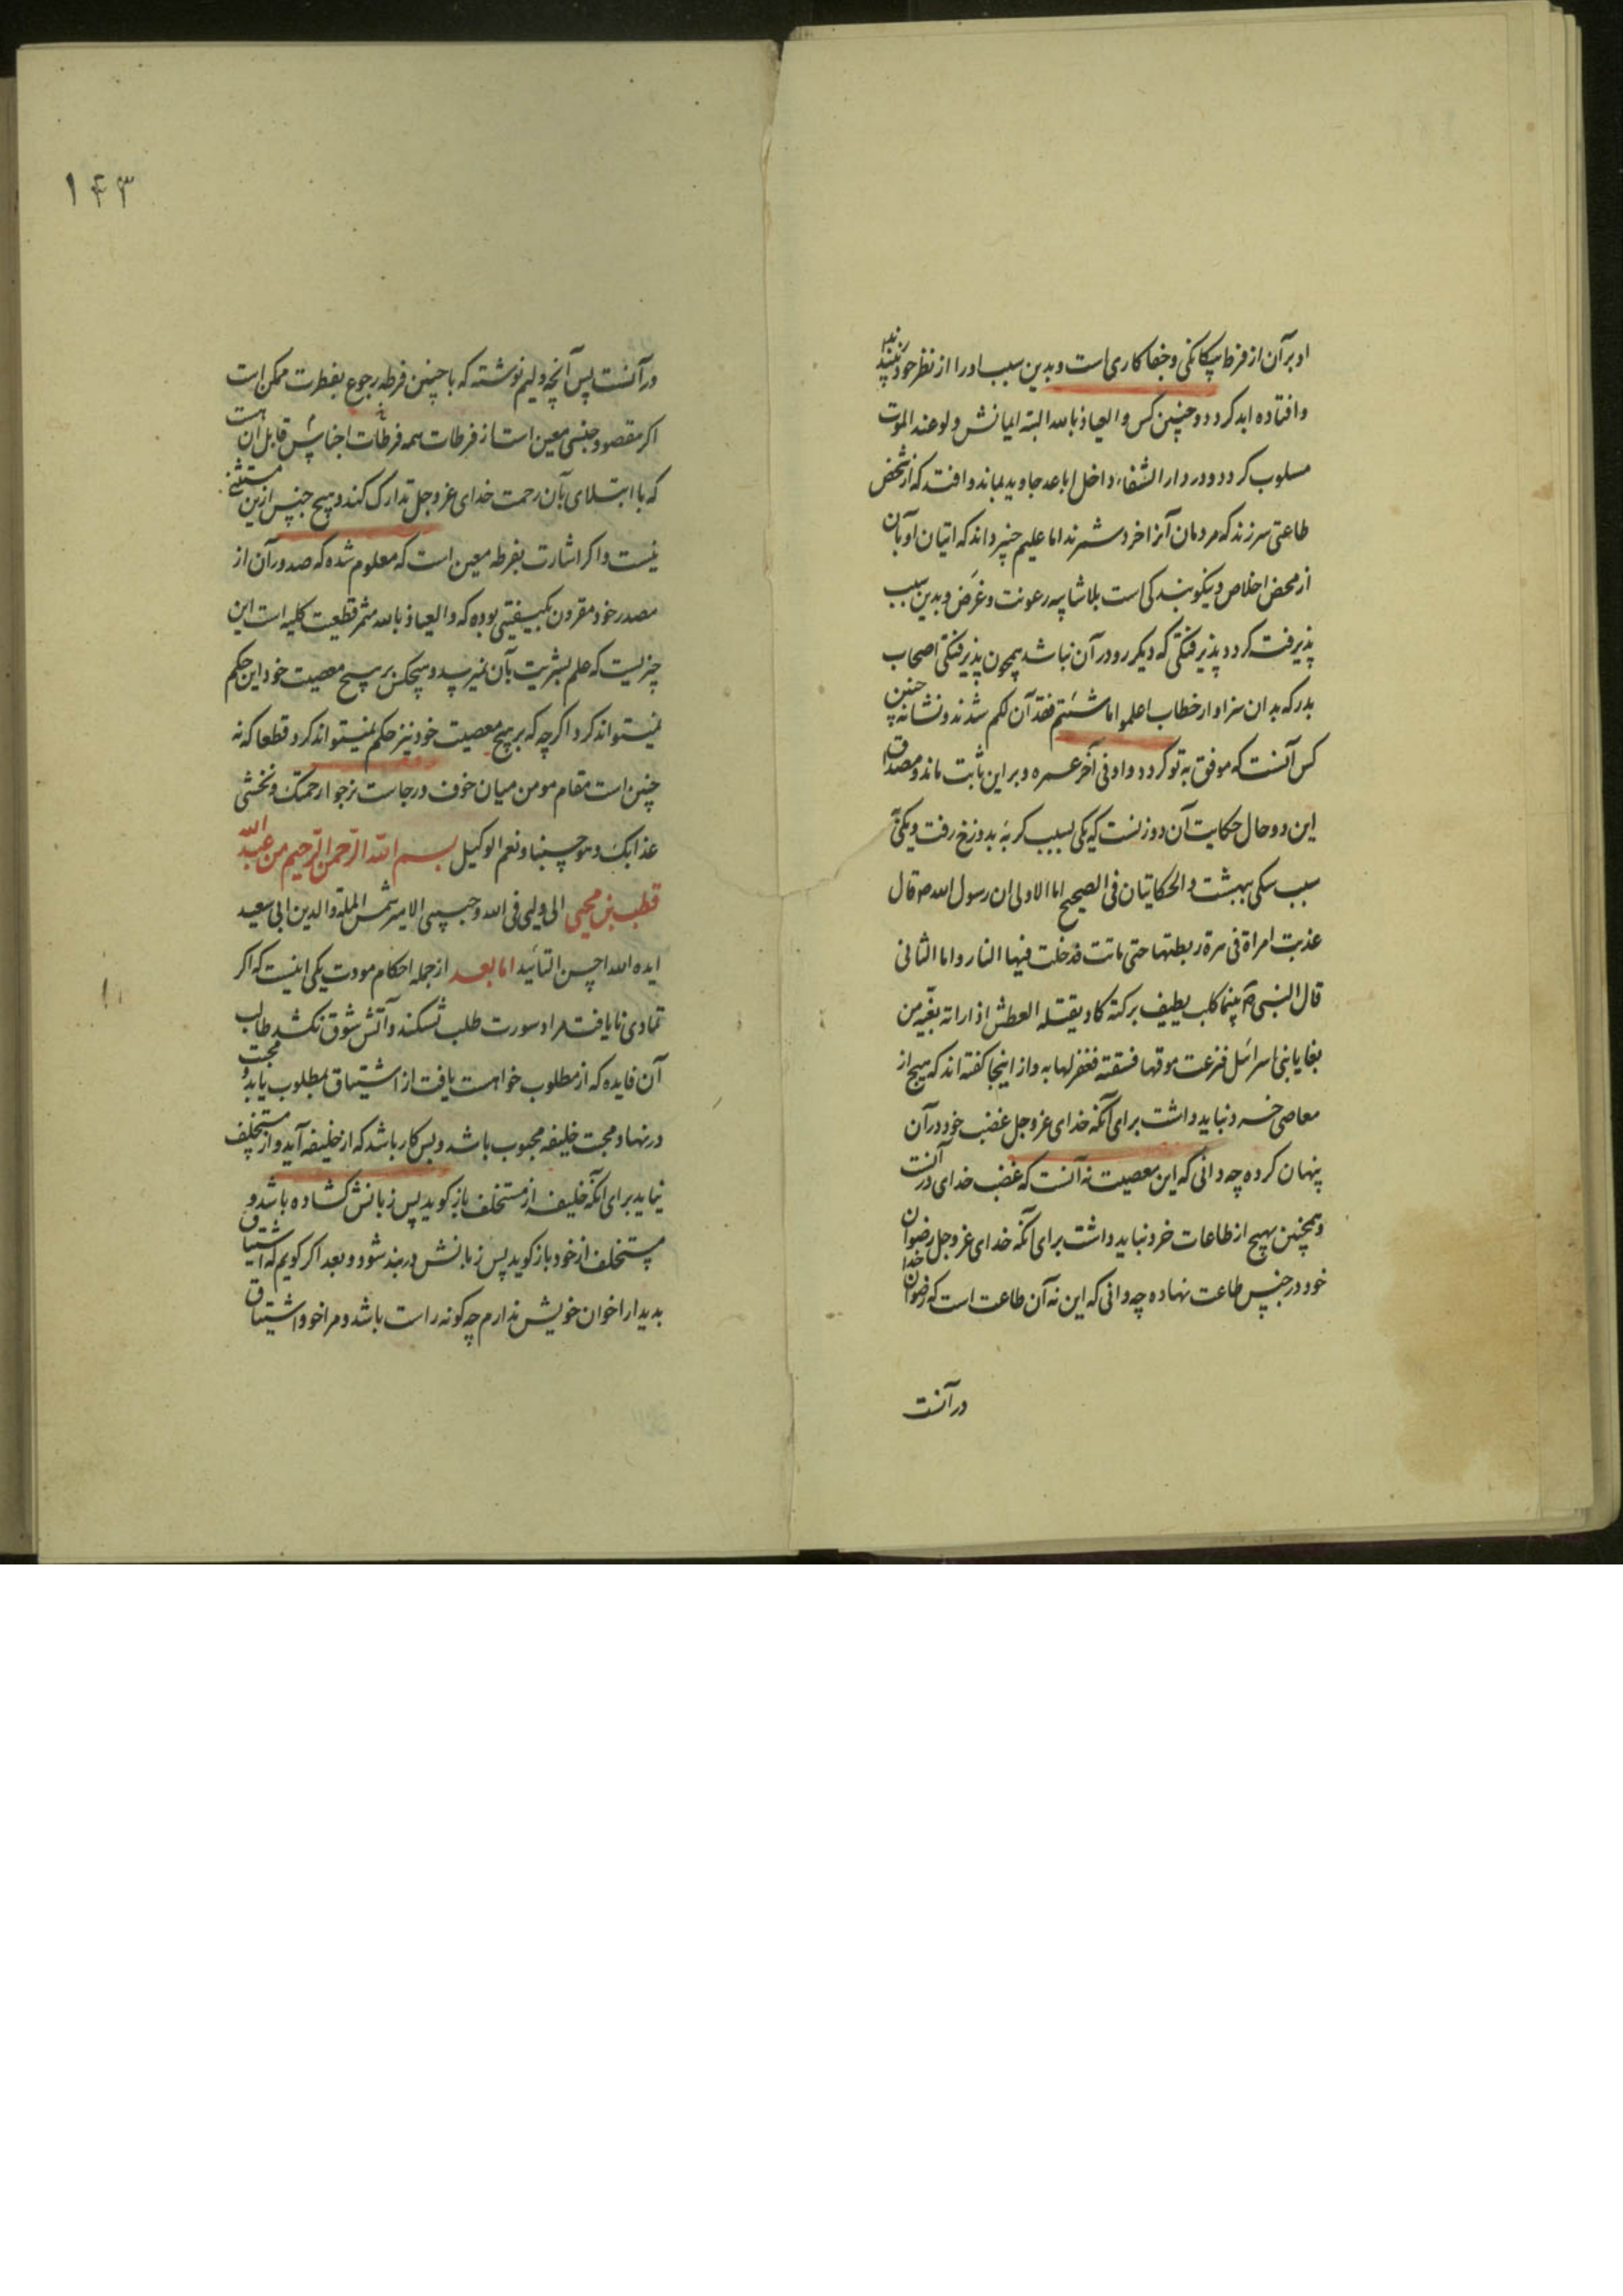 او بر آن از فرط بیگانگی و جفاکاری است و بدین سبب او را از نظر خود
و افتاده ابد کردد و چنین کس و العیاذ بالله البته ایمانش ولو عند الموت
مسلوب کردد و در دار الشقاء داخل اباعد جاوید بماند و افتد که از شخص
طاعتی سر زند که مردمان آنرا خرد شمرند اما علیم خبیر داند که اتیان او بآن
از محض اخلاص و نیکو بندکی است بلا شایبه رعونت و غرض و بدین سبب
پذیرفته کردد پذیرفتکی که دیکر رد در آن نباشد همچون پذیرفتکی اصحاب
بدر که بدان سزاوار خطاب اعملوا ما شئتم فقد آن لکم شدند و نشانه چنین
کس آنست که موفق به توبه کردد ولو فی آخر عمره و بر این ثابت ماند و مصداق
این دو حال حکایت آن دو زنست که یکی بسبب کربه بدوزخ رفت و یکی
سبب سکی ببهشت و الحکایتان فی الصحیح اما الاولی ان رسول الله ص قال
عذبت امراة فی هرة ربطتها حتی ماتت فدخلت فیها النار و اما الثانی
قال النبی ص بینما کلب یطیف برکیة کاد یقتله العطش اذ راته بغیة من
بغایا بنی اسرائیل فنزعت موقها فسقته فغفر لها به و از اینجا کفته اند که هیچ از
معاصی خرد نباید داشت برای آنکه خدای عز و جل غضب خود در آن
پنهان کرده چه دانی که این معصیت نه آنست که غضب خدای در آنست
و همچنین هیچ از طاعات خرد نباید داشت برای آنکه خدای عز و جل رضوان
خود در جنس طاعت نهاده چه دانی که این نه آن طاعت است که رضوان خدا
در آنست
۱۴۳
در آنست پس آنچه ولیم نوشته که با چنین فرطه رجوع بفطرت ممکن است
اکر مقصود جنسی معین است از فرطات همه فرطات اجناسش قابل آن هست
که با ابتلای بآن رحمت خدای عز و جل تدارک کند و هیچ جنس ازین مستثنی
نیست و اکر اشارت بفرطه معین است که معلوم شده که صدور آن از
مصدر خود مقرون بکیفیتی بوده که و العیاذ بالله مثمر قطیعت کلیه است این
چیزیست که علم بشریت بآن نمیرسد و هیچکس بر هیچ معصیت خود این حکم
نمیتواند کرد اکرچه که بر هیچ معصیت خود نیز حکم نمیتواند کرد قطعا که نه
چنین است مقام مومن میان خوف و رجاست نرجوا رحمتک و نخشی
عذابک و هو حسبنا و نعم الوکیل بسم الله الرحمن الرحیم من عبد الله
قطب بن محیی الی ولیی فی الله و حبیبی الامیر شمس الملة و الدین ابی سعید
ایده الله احسن التائید اما بعد از جمله احکام مودت یکی اینست که اکر
تمادی نایافت مراد سورت طلب بشکند و آتش شوق بکشد طالب
آن فایده که از مطلوب خواهست یافت از اشتیاق بمطلوب یابد و محبت
در نهاد محبت خلیفه محبوب باشد و بس کار باشد که از خلیفه آید و از مستخلف
نیاید برای آنکه خلیفه از مستخلف باز کوید پس زبانش کشاده باشد و
مستخلف از خود باز کوید پس زبانش در بند شود و بعد اکر کویم که اشتیاق
بدیدار اخوان خویش ندارم چه کونه راست باشد و مرا خود اشتیاق